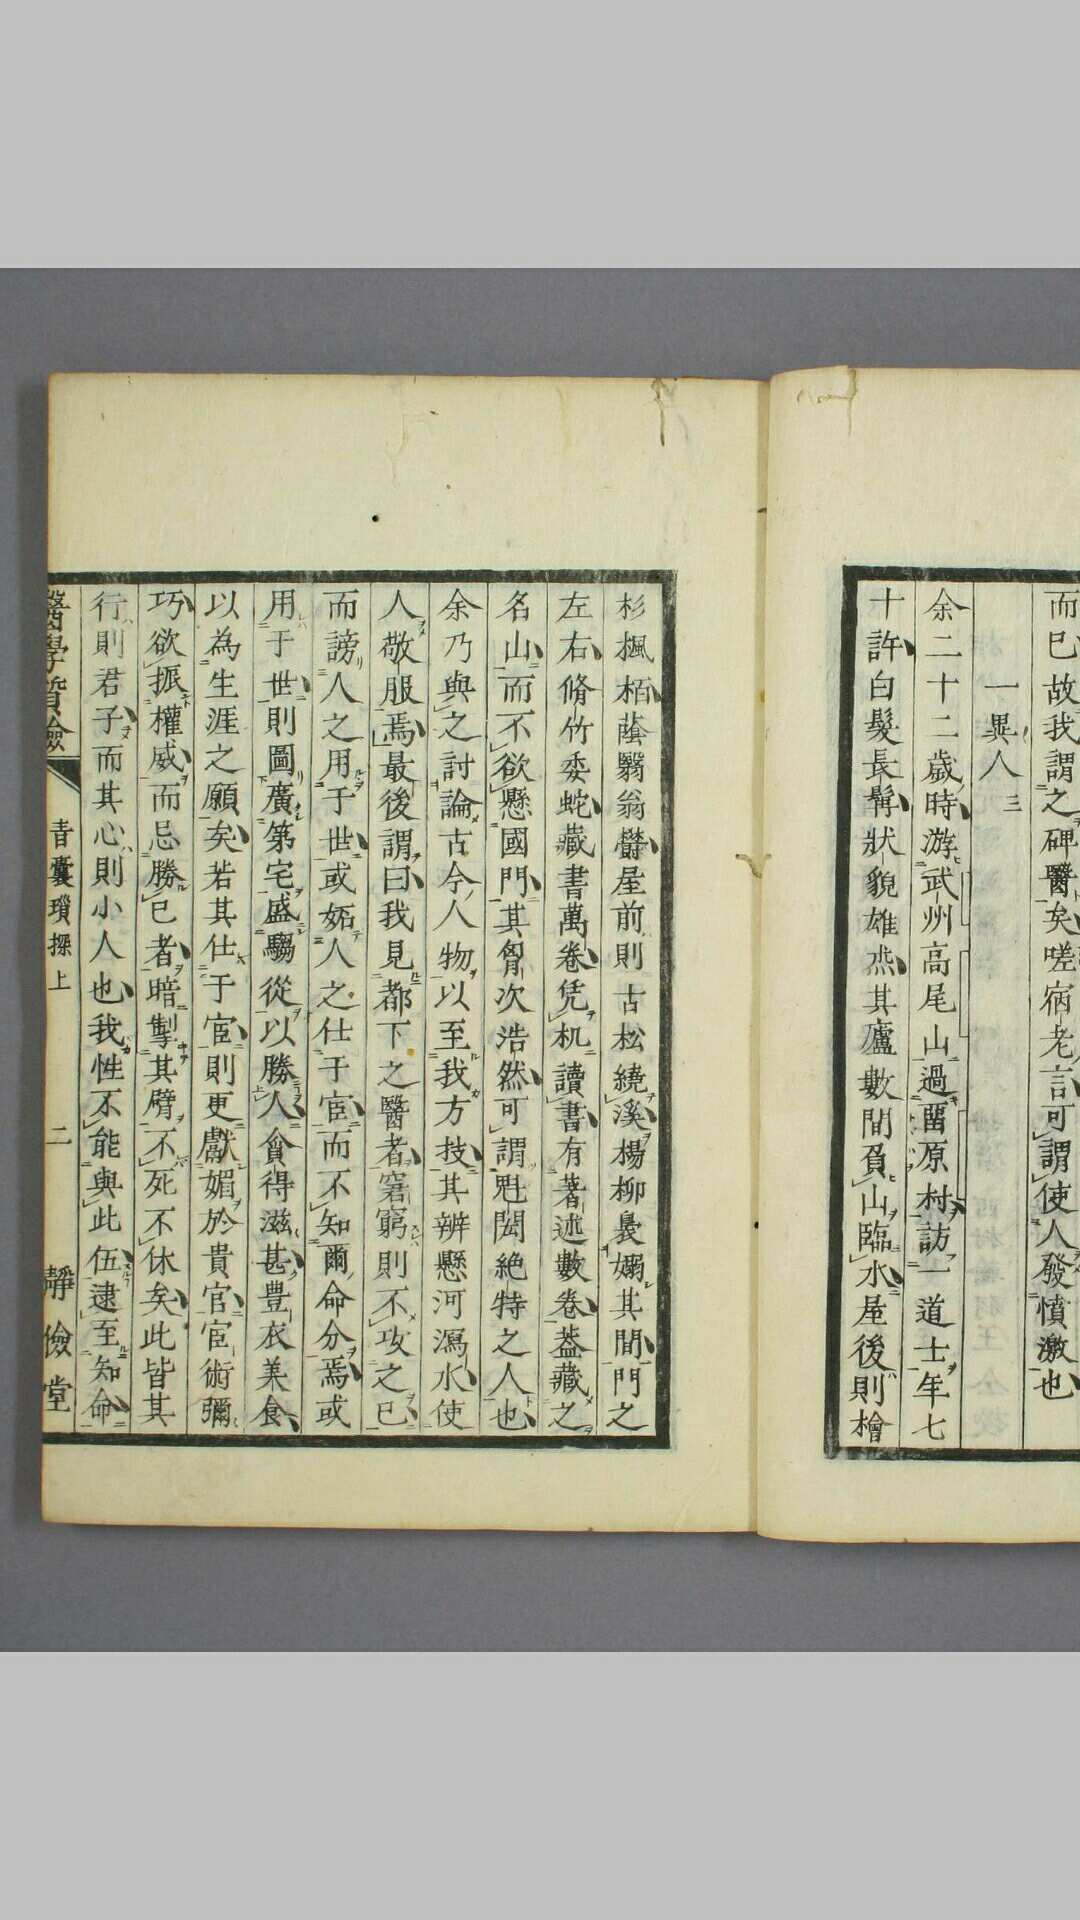 而已故我謂之碑醫矣嗟宿老言可謂使人發憤激也
一異人三
余二十二歲時游武州高尾山過畱原村訪一道士年七
十許白髮長髯狀貌雄杰其廬數間負山臨水屋後則檜
杉楓栢蔭翳蓊欝屋前則古松繞溪楊柳裊嫋其間門之
左右脩竹委蛇藏書萬卷凭机讀書有著述數卷葢藏之
名山而不欲懸國門其胷次浩然可謂魁閎絶特之人也
余乃與之討論古今人物以至我方技其辨懸河瀉水使
人敬服焉最後謂曰我見都下之醫者窘窮則不攻之已
而謗人之用于世或妬人之仕于宦而不知爾命分焉或
用于世則圖廣第宅盛騶從以勝人貪得滋甚豊衣美食
以為生涯之願矣若其仕于宦則更獻媚於貴官宦術彌
巧欲振權威而忌勝已者暗掣其臂不死不休矣此皆其
行則君子而其心則小人也我性不能與此伍逮至知命
醫學質驗 青囊瑣探上 二 靜儉堂